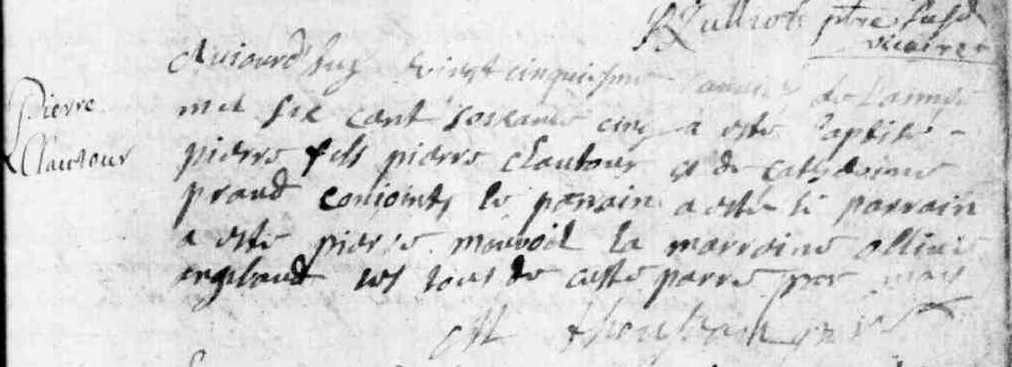 ptre susd
vicaire
Pierre
Clautour
Aujourdhuy vingt cinquiesme Janvier de Lannee
mil six cent soixante cinq a este baptise
pierre fils pierre Clautour et de Catherine
praud conjoints le parrain a este le parrain
a este pierre la marraine
engibaud les tous de ceste parr par moy